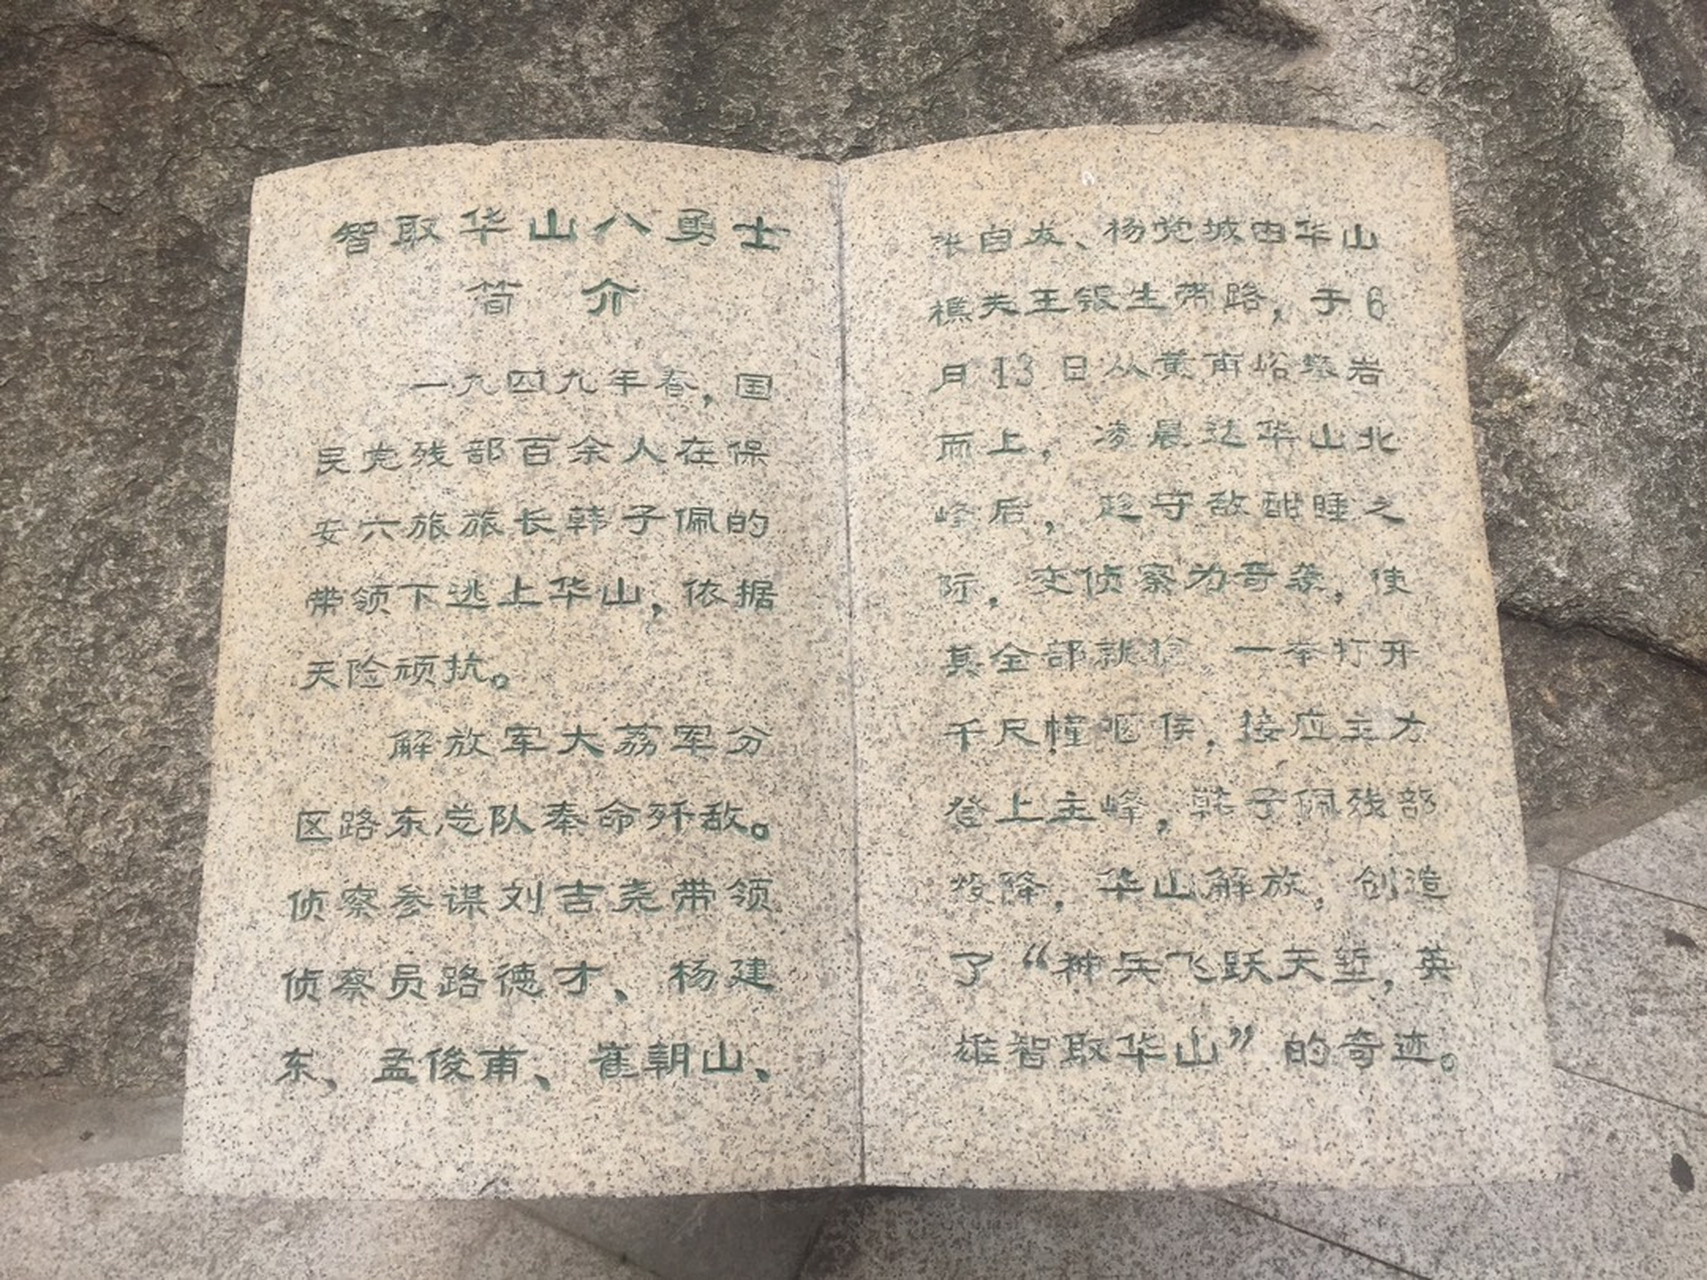 智取华山八勇士
简 介
一九四九年春，国
民党残部百余人在保
安六旅旅长韩子佩的
带领下逃上华山，依据
天险顽抗。
解放军大荔军分
区路东总队奉命歼敌。
侦察参谋刘吉尧带领
侦察员路德才、杨建
东、孟俊甫、崔朝山、
张自发、杨党城由华山
樵夫王银生带路，于6
月13日从黄甫峪攀岩
而上，凌晨达华山北
峰后，趁守敌酣睡之
际，变侦察为奇袭，使
其全部就擒 一举打开
千尺幢咽侯，接应主力
登上主峰，韩子佩残部
投降，华山解放，创造
了“神兵飞跃天堑，英
雄智取华山”的奇迹。